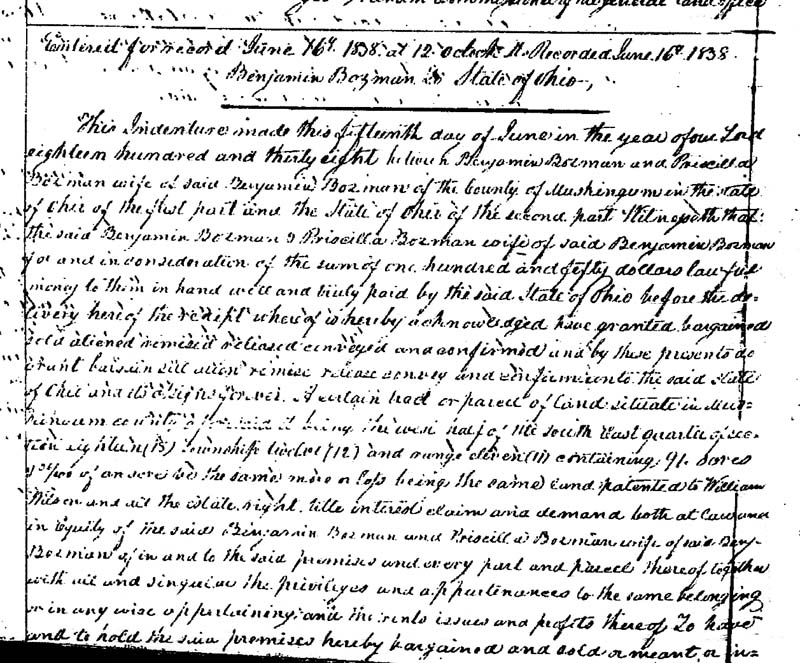 general land office
Entered for record June 16th. 1838 at 12 Oclock M. Recorded June 16th. 1838
Benjamin Bozman to State of Ohio
This Indenture made this fifteenth day of June in the year of our Lord
eighteen hundred and thirty eight between Benjamin Bozman and Priscilla
Bozman wife of said Benjamin Bozman of the County of Muskingum in the state
of Ohio of the first part and the State of Ohio of the second part Witnesseth that
the said Benjamin Bozman & Priscilla Bozman wife of said Benjamin Bozman
for and in consideration of the sum of one hundred and fifty dollars lawful
money to them in hand well and truly paid by the said State of Ohio before the de-
livery hereof the receipt whereof is hereby acknowledged have granted bargained
sold aliened remised released conveyed and confirmed and by these presents do
grant bargain sell alien remise release convey and confirm unto the said State
of Ohio and its assigns forever. A certain tract or parcel of land situate in Mus-
kingum county aforesaid it being the west half of the south East quarter of sec-
tion eighteen (18) township twelve (12) and range eleven (11) containing 91 acres
of an acre be the same more or less being the same land patented to William
Wilson and all the estate, right, title interest claim and demand both at Law and
in Equity of the said Benjamin Bozman and Priscilla Bozman wife of said Benj-
Bozman of in and to the said premises and every part and parcel thereof, together
with all and singular the privileges and appurtenances to the same belonging
or in any wise appertaining; and the rents issues and profits thereof To have
and to hold the said premises hereby bargained and sold or meant or in-